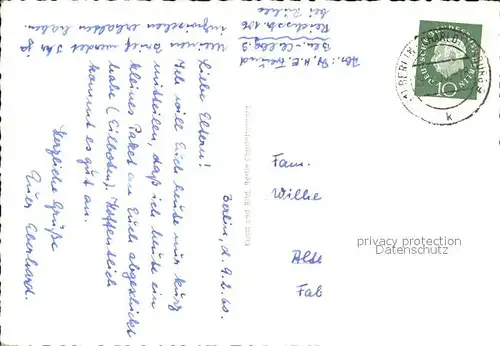 Meinen Brief werdet Ihr ja
inzwischen erhalten haben.
Abs.: W. H. E. Freund
Bln.-Chlbg. 9
Reichsstr. 106
bei Zühlke
Berlin, d. 9.2.60.
Liebe Eltern!
Ich will Euch heute nur kurz
mitteilen, daß ich heute ein
kleines Paket an Euch abgeschickt
habe (Eilboten). Hoffentlich
kommt es gut an.
Herzliche Grüße
Euer Eberhard.
Kunst und Bild, Berlin-Charlottenburg
BERLIN-CHARLOTTENBURG
k
DEUTSCHE BUNDESPOST BERLIN
10
Fam.
Wilke
Alse
Fab
privacy protection
Datenschutz